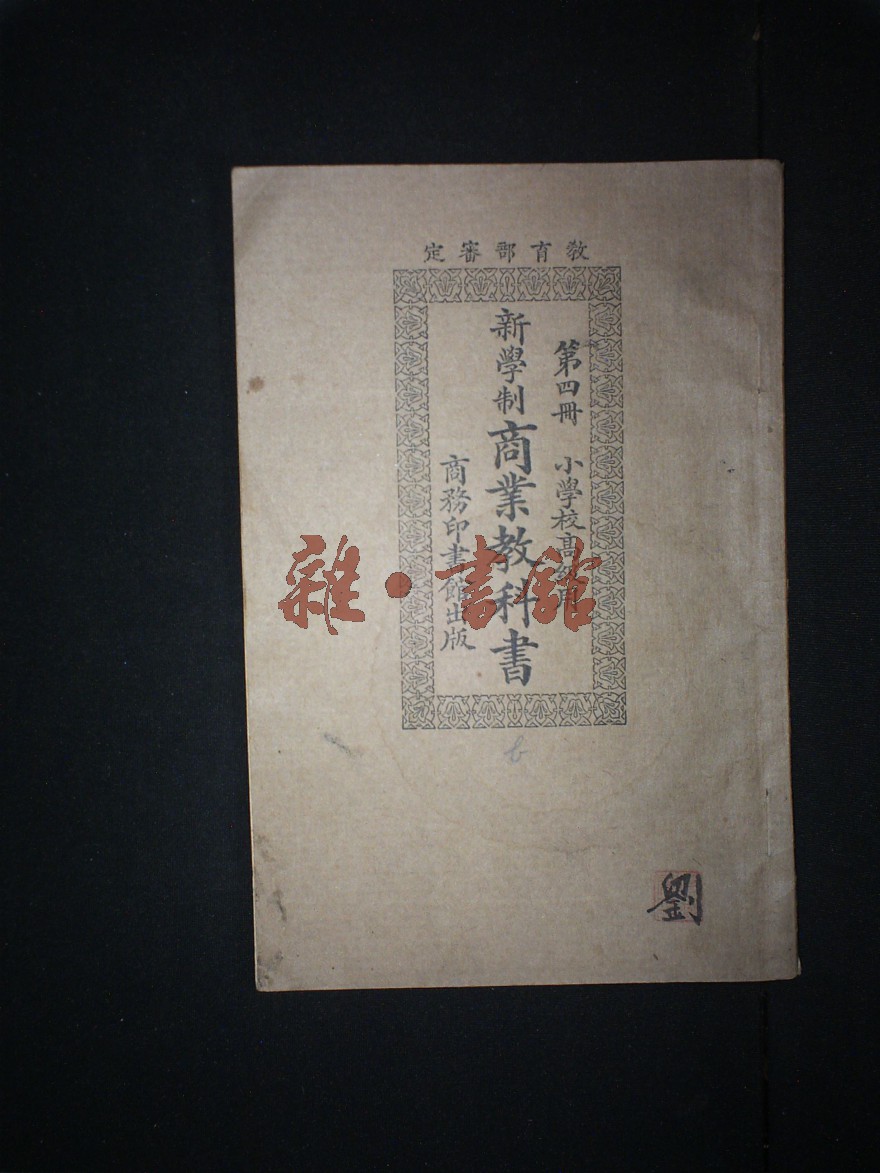 教育部審定
第四冊 小學校高級用
新學制商業教科書
商務印書館出版
雜·書館
劉